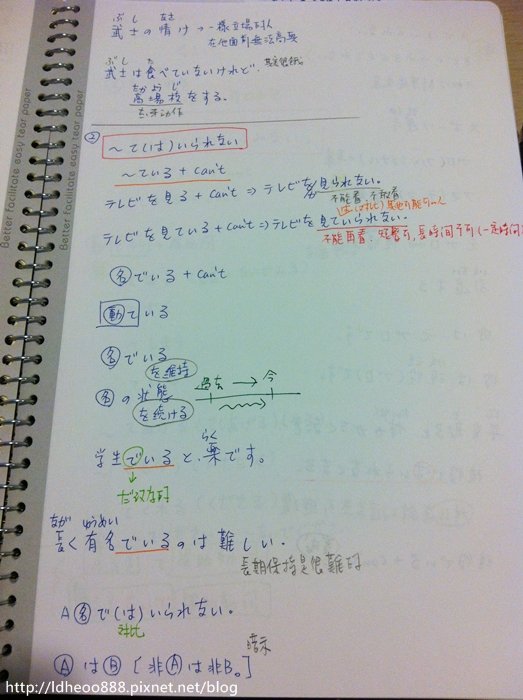 ぶし なさ
武士の情け → 一樣立場的人
在他面前無法高興
ぶし た
武士は食べていないけれど、
たかようじ
高揚枝をする。
② ～て(は)いられない
～ている + can't
テレビを見る + can't ⇒ テレビを見られない。
不能看、不敢看
テレビを見ている + can't ⇒ テレビを見ていられない。
不能再看、短暫可,長時間不可(一定時間
名でいる + can't
動ている
名でいる
を維持
名の状態
を続ける
過去 → 今
らく
学生でいると、薬です。
なが ゆうめい
長く有名でいるのは難しい。
長期保持是很難的
A名で(は)いられない。
対比
暗示
AはB [非Aは非B。]
Better facilitate easy tear paper
Better facilitate easy tear paper
http://ldheoo888.pixnet.net/blog